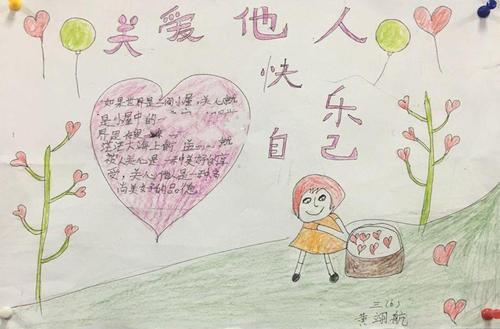 关爱他人
快乐
自己
如果世界是一间小屋,关人就
是小屋中的一
茫茫大海上的
关人关心是一种美好的享
受,关人他是一种高
尚美好的品德
三(6)
黄翊航